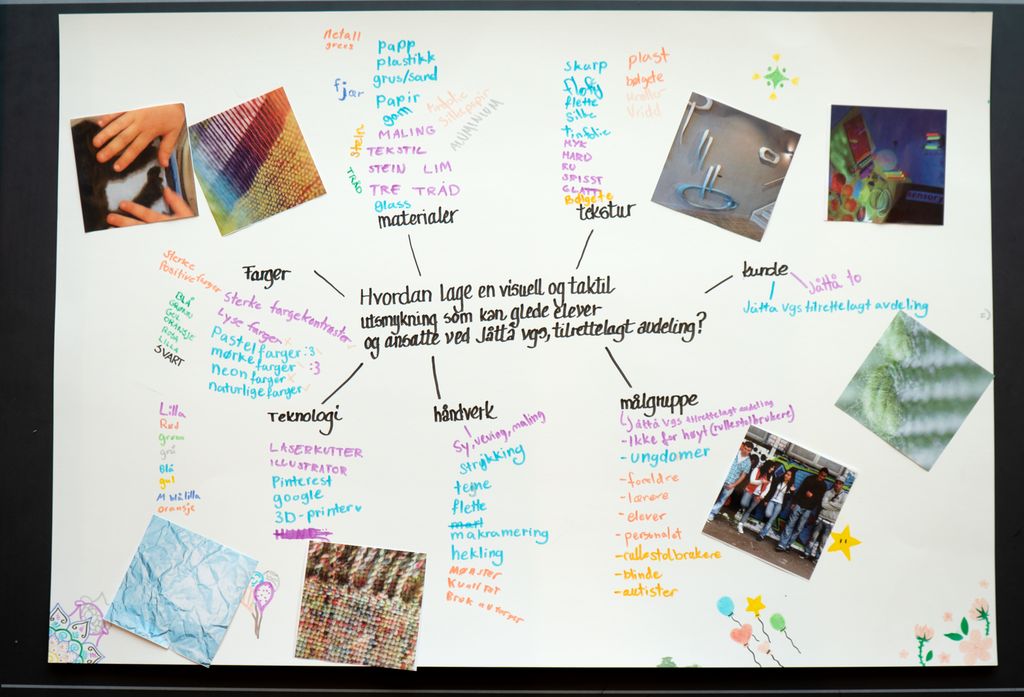 Metall
papp
plastikk
grus/sand
fjær
papir
garn
Silkepapir
ALUMINIUM
Stein
MALING
TEKSTIL
STEIN LIM
TRE TRÅD
Glass
materialer
skarp
flette
Silke
tinfolie
MYK
HARD
RU
SPISST
GLATT
Bølgete
tekstur
plast
bølgete
Vridd
Sensory
Farger
Sterke farger
Positive farger
BLÅ
GRØNN
GUL
ORANSJE
ROSA
LILLA
SVART
Sterke fargekontraster
Lyse farger
Pastelfarger :3
mørke farger :3
neon farger
naturlige farger
Hvordan lage en visuell og taktil
utsmykning som kan glede elever
og ansatte ved Jåttå vgs, tilrettelagt avdeling?
kunde
Jåttå to
Jåtta vgs tilrettelagt avdeling
=)
Lilla
Rød
grønn
grå
Blå
gul
M blå lilla
oransje
Teknologi
LASERKUTTER
ILLUSTRATOR
Pinterest
google
3D-printer
håndverk
Sy, veving, maling
Strikking
tegne
flette
makramering
hekling
Mønster
Kvalitet
Bruk av farger
målgruppe
Jåttå vgs tilrettelagt avdeling
-Ikke for høyt (rullestolbrukere)
-Ungdomer
-foreldre
-lærere
-elever
-personalet
-rullestolbrukere
-blinde
-autister